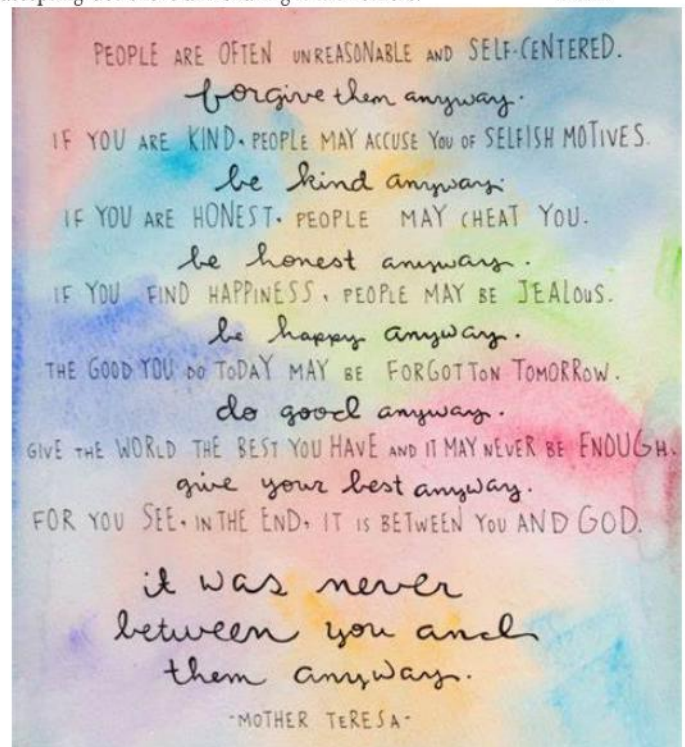 PEOPLE ARE OFTEN UNREASONABLE AND SELF-CENTERED.
forgive them anyway.
IF YOU ARE KIND, PEOPLE MAY ACCUSE YOU OF SELFISH MOTIVES.
be kind anyway.
IF YOU ARE HONEST, PEOPLE MAY CHEAT YOU.
be honest anyway.
IF YOU FIND HAPPINESS, PEOPLE MAY BE JEALOUS.
be happy anyway.
THE GOOD YOU DO TODAY MAY BE FORGOTTON TOMORROW.
do good anyway.
GIVE THE WORLD THE BEST YOU HAVE AND IT MAY NEVER BE ENOUGH.
give your best anyway.
FOR YOU SEE, IN THE END, IT IS BETWEEN YOU AND GOD.
it was never
between you and
them anyway.
-MOTHER TERESA-